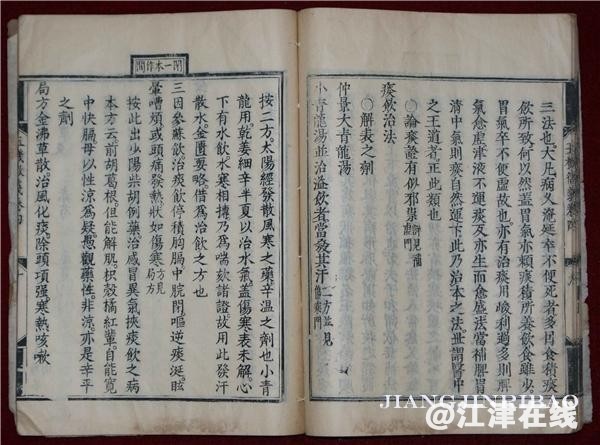 三法也大凡病久淹延卒不便死者多因食積痰
飲所致何以然蓋胃氣亦頼痰積所養飲食雖少
胃氣卒不便虛故也亦有治痰用峻利過多則脾
氣愈虛津液不運痰反亦生而愈盛法當補脾胃
清中氣則痰自然運下此乃治本之法並謂醫中
之王道者正此類也
○論痰證有似邪祟詳見
痰飲治法
○解表之劑
仲景大青龍湯
小青龍湯並治溢飲者當發其汗二方並見傷寒門
按二方太陽經發散風寒之藥辛溫之劑也小青
龍用乾姜細辛半夏以治水氣蓋傷寒表未解心
下有水飲水寒相摶乃為喘欬諸證故用此發汗
散水金匱要略借為治飲之方也
三因參蘇飲治痰飲停積胸膈中脘閉嘔逆痰涎眩
暈嘈煩或頭痛發熱狀如傷寒方見局方
按此出少陽柴胡例藥治感冒異氣挾痰飲之病
本方云前胡葛根但能解肌枳殼橘紅輩自能寬
中快膈毋以性涼為疑愚觀藥性非涼亦是辛平
之劑
局方金沸草散治風化痰除頭項強寒熱欬嗽
JIANGJINRIBAO
@江津在线